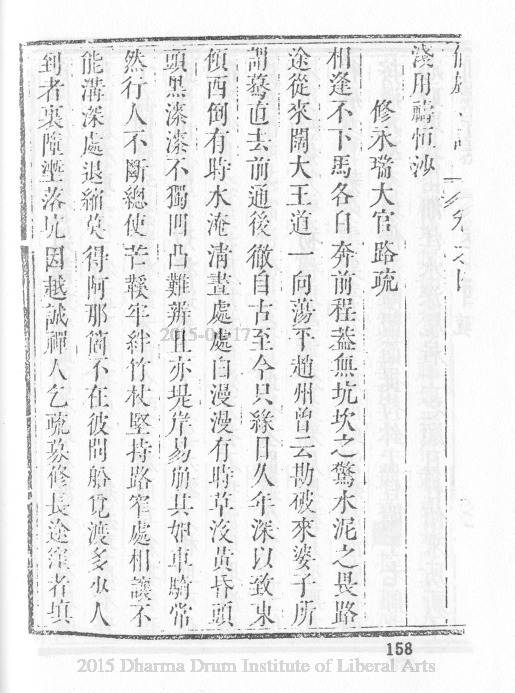 淺用禱恒沙
修永瑞大官路疏
相逢不下馬各自奔前程葢無坑坎之驚水泥之畏路
途從來闊大王道一向蕩平趙州曾云勘破來婆子所
謂驀直去前通後徹自古至今只緣日久年深以致東
傾西倒有時水淹清晝處處白漫漫有時草沒黃昏頭
頭黑漆漆不獨凹凸難辨且亦堤岸易崩其如車騎常
然行人不斷總使芒鞵牢絆竹杖堅持路窄處相讓不
能溝深處退縮莫得阿那箇不在彼問船覓渡多少人
到者裏障壍落坑因越誠禪人乞疏募修長途窪者填
2015-04-17
158
2015 Dharma Drum Institute of Liberal Arts